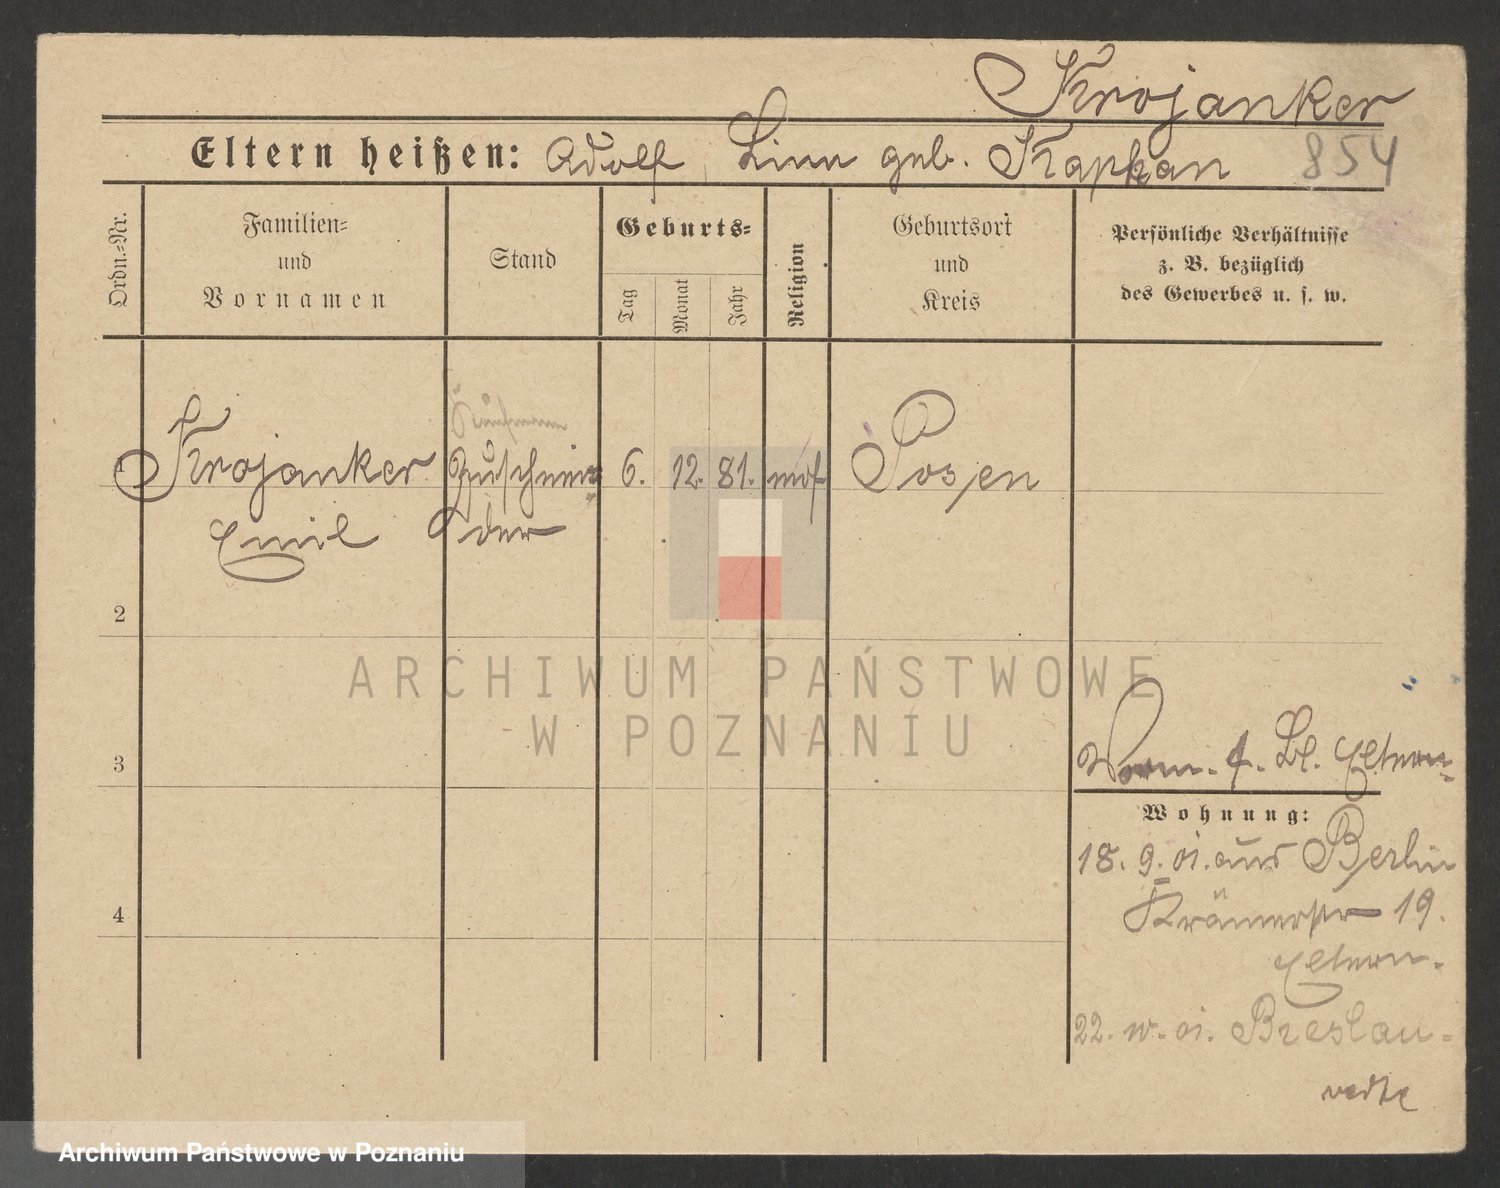 Krojanker
Eltern heißen: Adolf, Linn geb. Kaphan
854
Ordn.=Nr.
Familien=
und
Vornamen
Stand
Geburts=
Tag
Monat
Jahr
Religion
Geburtsort
und
Kreis
Persönliche Verhältnisse
z. B. bezüglich
des Gewerbes u. s. w.
Kaufmann
1 Krojanker Zuschnei= 6. 12. 81. mos Posen
Emil der
2
ARCHIWUM PAŃSTWOWE
W POZNANIU
3
Eltern
Wohnung:
18. 9. 01. aus Berlin
Krämerstr 19.
Eltern.
4
22. 01. Breslau
Archiwum Państwowe w Poznaniu